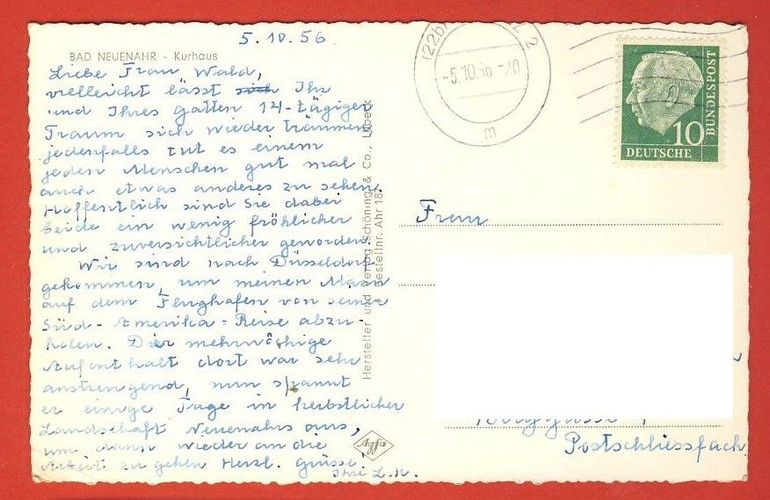 5.10.56
BAD NEUENAHR - Kurhaus
Liebe Frau Wald,
vielleicht lässt sich Ihr
und Ihres Gatten 14-tägiger
Traum sich wieder träumen
jedenfalls tut es einem
jeden Menschen gut mal
auch etwas anderes zu sehen.
Hoffentlich sind Sie dabei
beide ein wenig fröhlicher
und zuversichtlicher geworden.
Wir sind nach Düsseldorf
gekommen, um meinen Mann
auf dem Flughafen von seiner
Süd-Amerika=Reise abzu-
holen. Der mehrwöchige
Aufenthalt dort war sehr
anstrengend, nun spannt
er einige Tage in herbstlicher
Landschaft Neuenahrs aus,
um dann wieder an die
Arbeit zu gehen Herzl. Grüsse
Ihre
Hersteller und Verlag Schöning & Co., Lübeck
Bestellnr. Ahr 18
Agfa
(22b)
2
-5.10.56-20
m
10
DEUTSCHE
BUNDESPOST
Frau
Postschliessfach